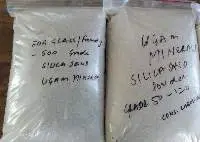 FOR GLASS/
500 Grade
SILICA SAND
UGAM MINERALS
UGAM
MINERALS
SILICA SAND
POWDER
GRADE 50-120